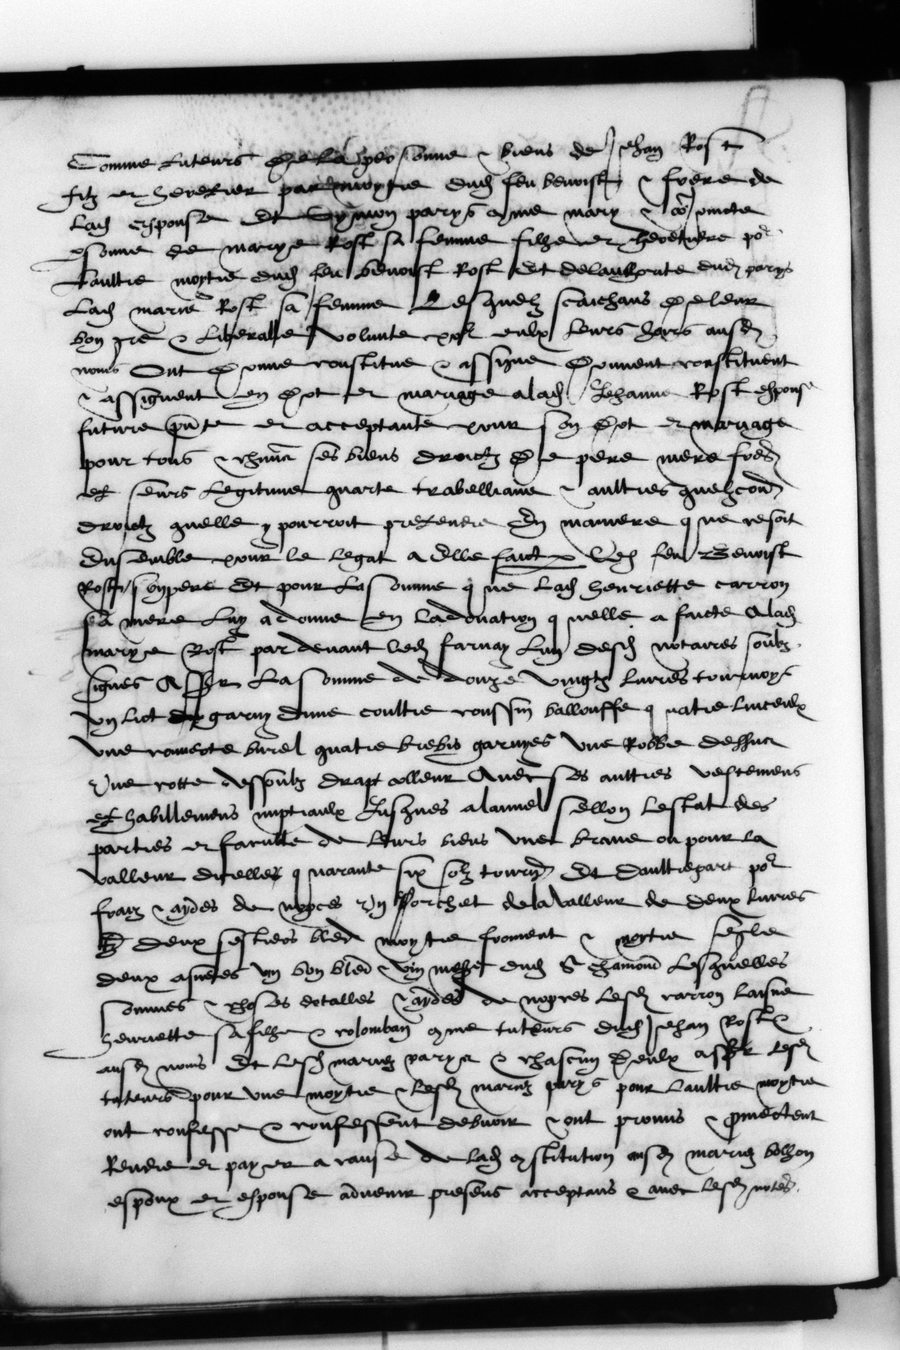 Comme tuteurs de la personne & biens de Jehan Rost
filz et heretier par moytie dud feu benoist & frere de
lad esponse Et Symon parys come mary & conjoincte
persone de marye Rost sa femme filhe et heretiere por
laultre moytie dud feu benoist Rost Et delauctorite dud parys
Lad marie Rost sa femme Lesquelz scaichans de leur
bon gre & Liberalle volunte pour eulx leurs hoirs ausd
noms Ont donne constitue & assigne donnent constituent
& assignent en dot et mariage a lad Jehanne Rost esponse
future pnte et acceptante pour son dot et mariage
pour tous & chuns ses biens droictz de pere mere freres
et seurs legitime quarte trabelliane & aultres quelzconq
droictz quelle y pourroit pretendre En maniere que ce soit
Ensemble pour le legat a elle faict par led feu Benoist
Rost son pere Et pour la somme que lad henriette carron
sa mere luy a donne en la donation quelle a faicte a lad
marye Rost par devant led farnay Lung desd notaires soubz
signes Assr La somme de douze vingtz livres tournoys
Ung lict garny dune coultre coussin ballouffe quatre linceulx
une couverte burel quatre brebis garnyes Une Robbe dessus
Une cotte dessoubz drapt colleur Avec ses aultres vestemens
et habillemens nuptiaulx Jusques alannel sellon lestat des
parties et faculte de leurs biens Une brane ou pour la
valleur dicelles quarante six solz tourns Et daultrepart por
fraiz & aydes de nopces Ung porchet de la valleur de deux livres
tz deux sestiers bled moytie froment & moytie seigle
deux asnees vin bon bled & vin mesure dud St chamond Lesquelles
sommes & choses dotalles & aydes de nopces lesd carron laisne
henriette sa filhe & colomban come tuteurs dud Jehan Rost &
ausd noms Et lesd mariez parys & chascun deulx assr lesd
tuteurs pour une moytie & lesd mariez parys pour laultre moytie
ont confesse & confessent debvoir & ont promis & promectent
Rendre et payer a cause de lad constitution ausd mariez bolhon
espoux et esponse advenir presens acceptans & avec lesd notres